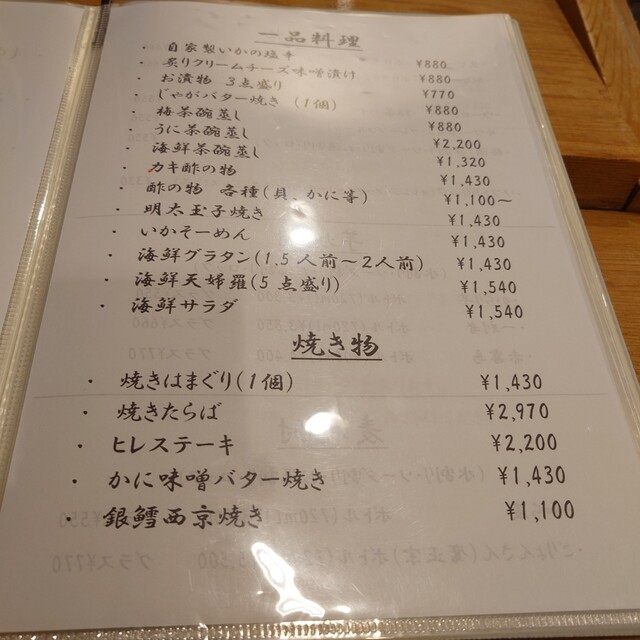 一品料理
・自家製いかの塩辛 ¥880
・炙りクリームチーズ味噌漬け ¥880
・お漬物 3点盛り ¥770
・じゃがバター焼き (1個) ¥880
・梅茶碗蒸し ¥880
・うに茶碗蒸し ¥2,200
・海鮮茶碗蒸し ¥1,320
・カキ酢の物 ¥1,430
・酢の物 各種(貝、かに等) ¥1,100〜
・明太玉子焼き ¥1,430
・いかそーめん ¥1,430
・海鮮グラタン(1.5人前〜2人前) ¥1,430
・海鮮天婦羅(5点盛り) ¥1,540
・海鮮サラダ ¥1,540
焼き物
・焼きはまぐり(1個) ¥1,430
・焼きたらば ¥2,970
・ヒレステーキ ¥2,200
・かに味噌バター焼き ¥1,430
・銀鱈西京焼き ¥1,100